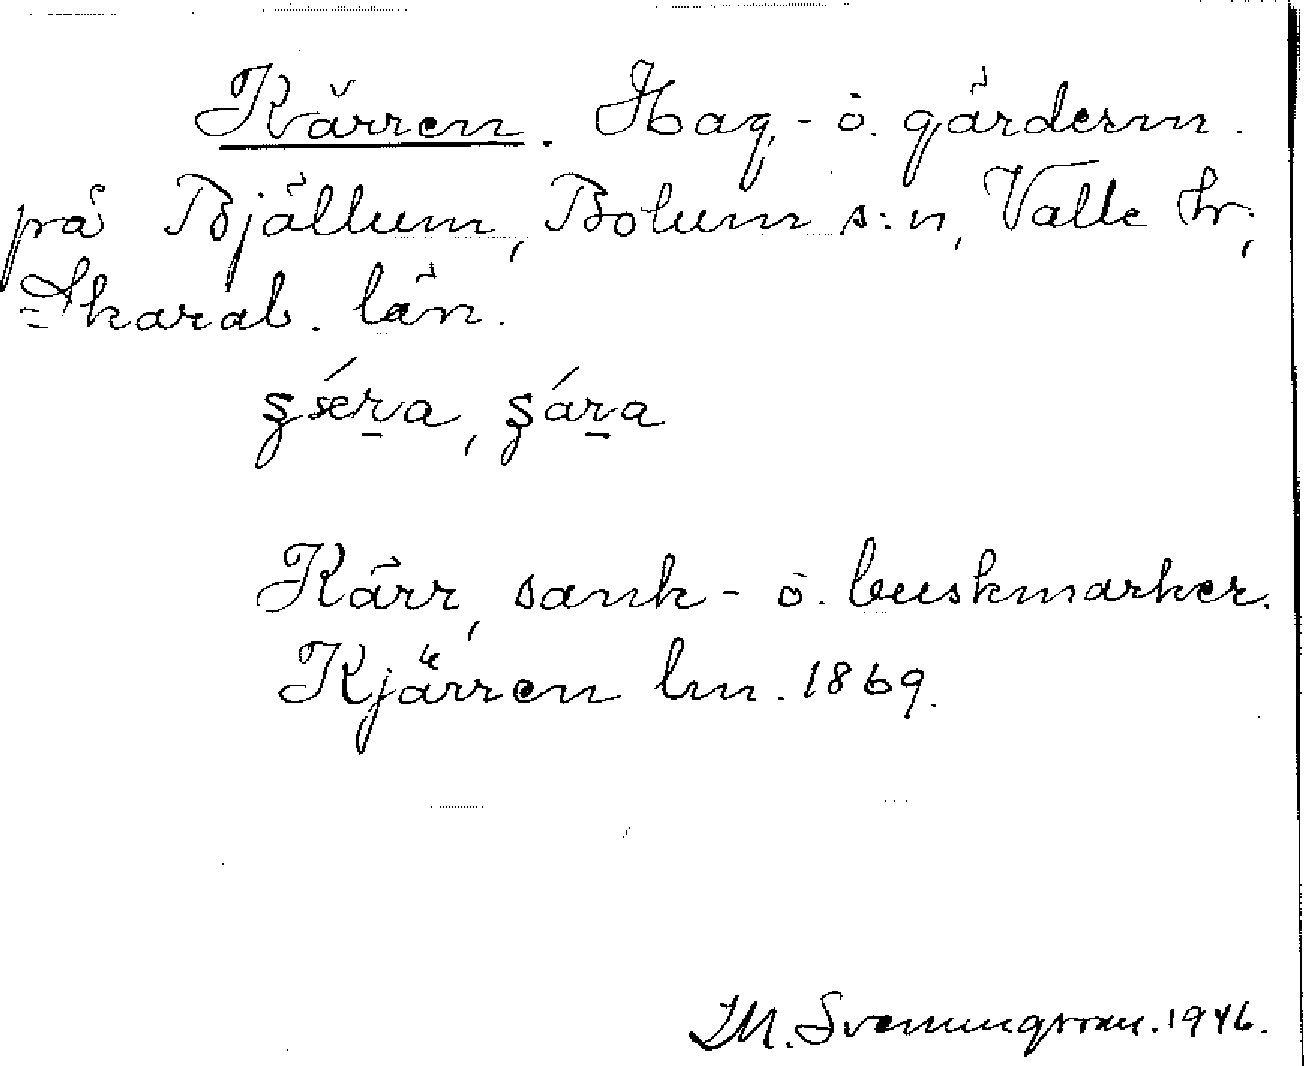 Kärren. Hag- o. gärdesm.
på Bjällum, Bolum s:n, Valle hr,
Skarab. län.
Kärr, sank- o. buskmarker.
Kjärren lm. 1869.
M. Svenungsson. 1946.